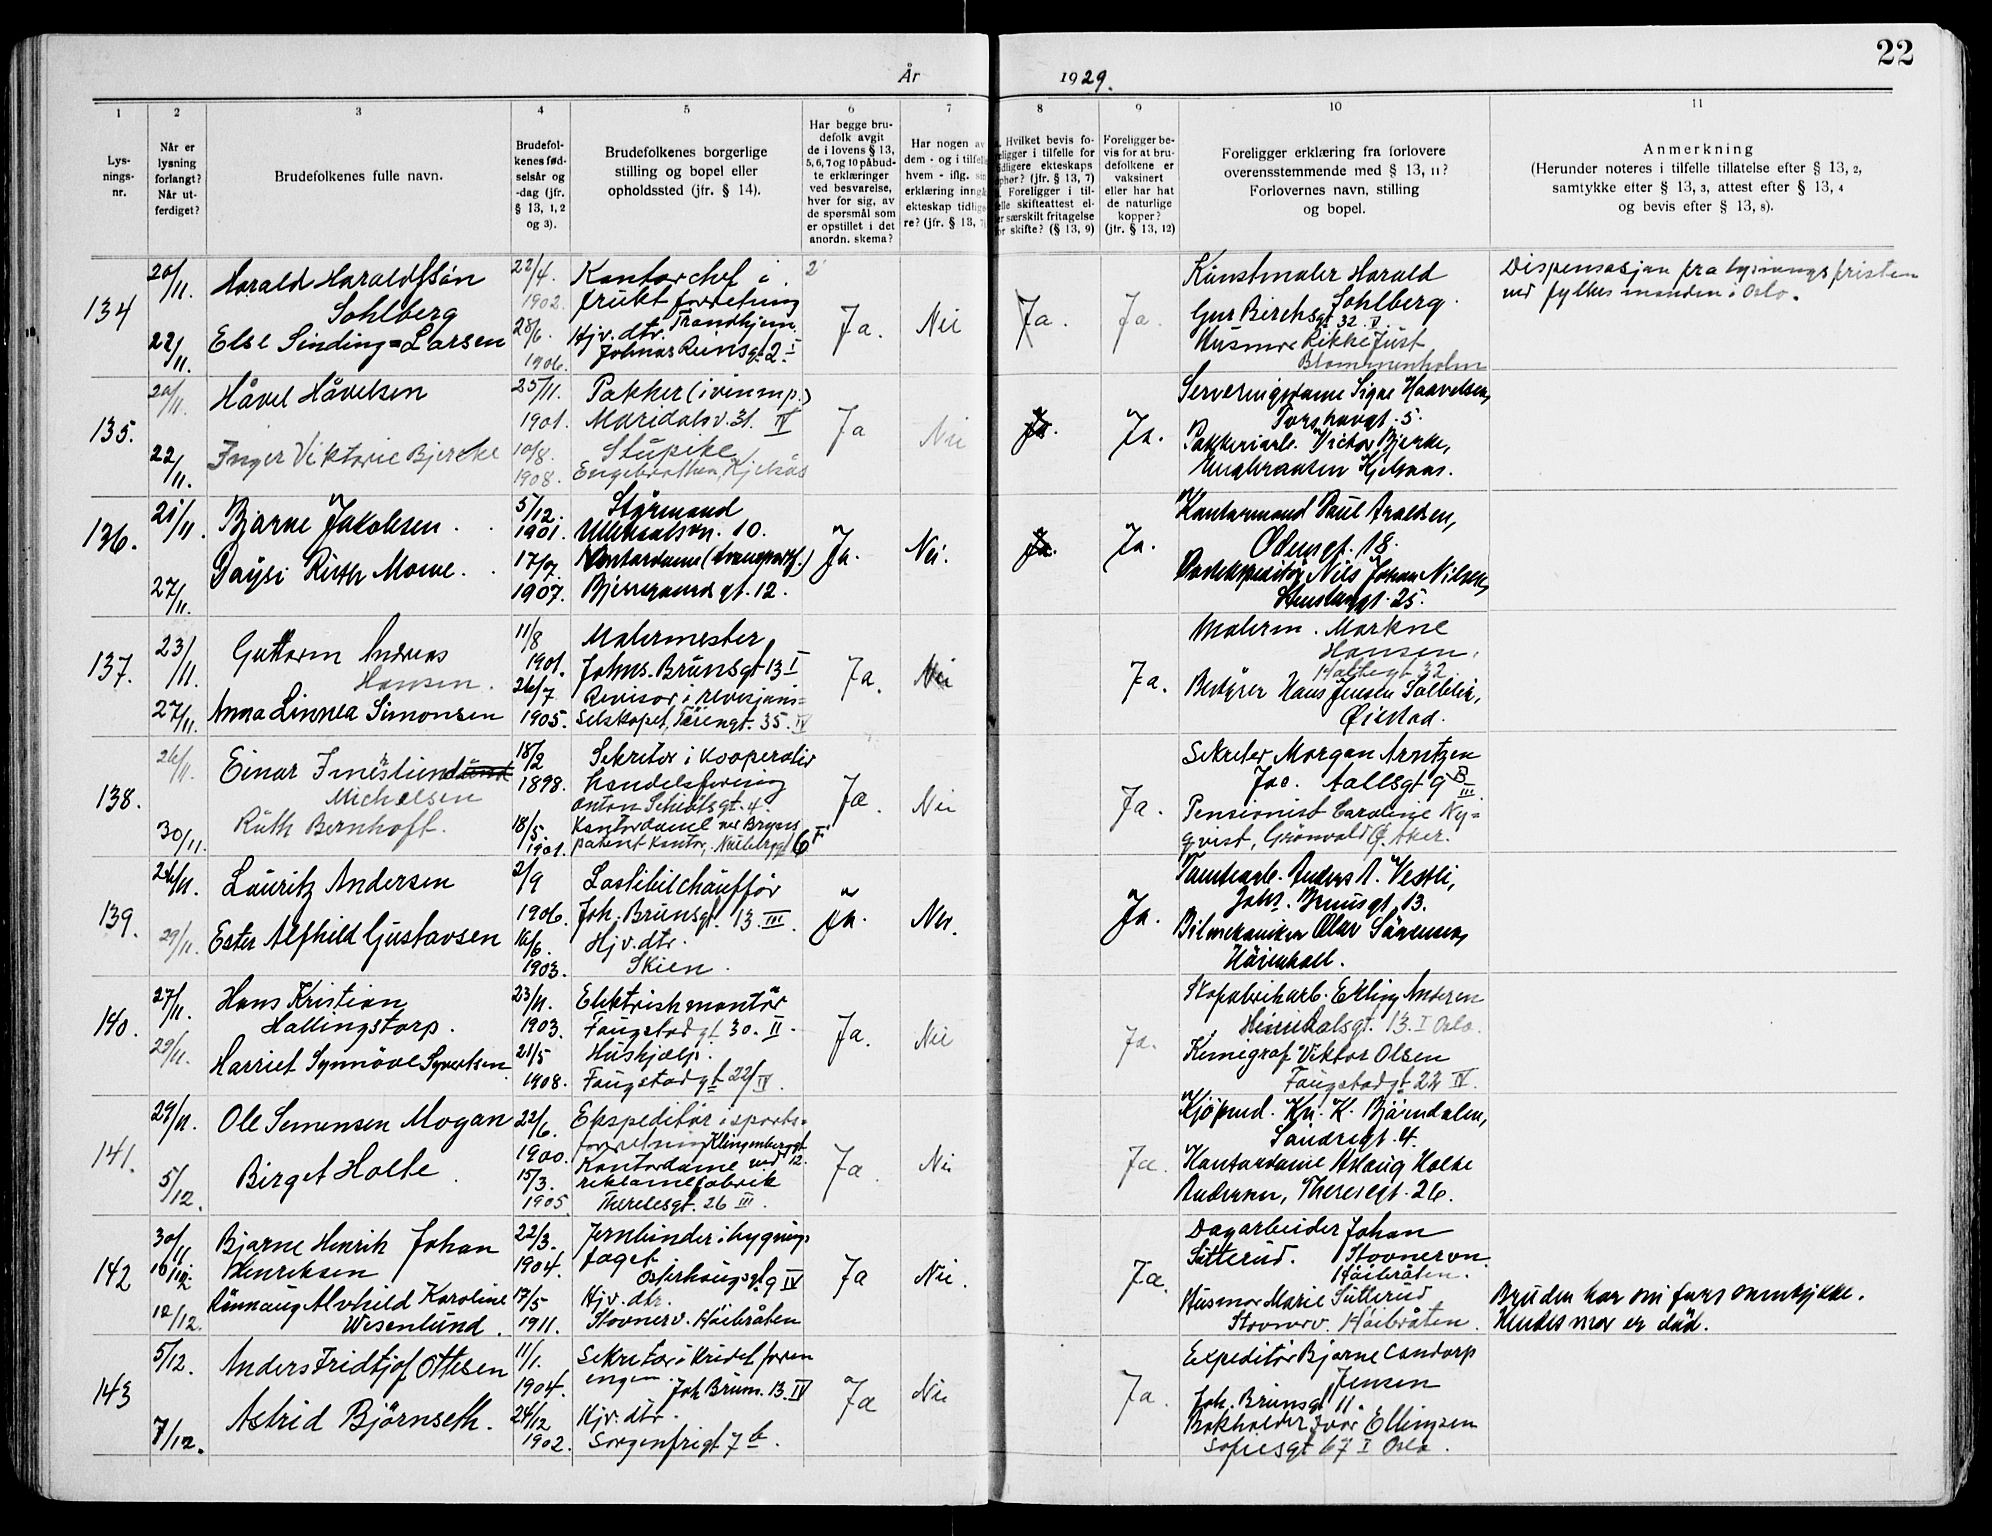 22
År 1929.
1
2
3
4
5
6
7
8
9
10
11
Lys-
nings-
nr.
Når er
lysning
forlangt?
Når ut-
ferdiget?
Brudefolkenes fulle navn.
Brudefol-
kenes fød-
selsår og
-dag (jfr.
§ 13, 1, 2
og 3).
Brudefolkenes borgerlige
stilling og bopel eller
opholdssted (jfr. § 14).
Har begge bru-
defolk avgit
de i lovens § 13,
5, 6, 7 og 10 påbud-
te erklæringer
ved besvarelse,
hver for sig, av
de spørsmål som
er opstillet i det
anordn. skema?
Har nogen av
dem - og i tilfelle
hvem - iflg. sin
erklæring inngå
ekteskap tidlige
re? (jfr. § 13, 7)
Hvilket bevis fo-
religger i tilfelle for
tidligere ekteskaps
ophør? (jfr. § 13, 7)
Foreligger i til-
felle skifteattest el-
ler særskilt fritagelse
for skifte? (§ 13, 9)
Foreligger be-
vis for at bru-
defolkene er
vaksinert
eller har hat
de naturlige
kopper?
(jfr. § 13, 12)
Foreligger erklæring fra forlovere
overensstemmende med § 13, 11?
Forlovernes navn, stilling
og bopel.
Anmerkning
(Herunder noteres i tilfelle tillatelse efter § 13, 2,
samtykke efter § 13, 3, attest efter § 13, 4
og bevis efter § 13, 8).
134
20/11.
22/11.
Harald Haraldssøn
Sohlberg
Else Sinding=Larsen
22/4.
1902.
28/6.
1906.
Kontorchef i
frukt forretning
Trondhjem.
Hjv. dtr.
2 I
Ja.
Nei
Ja.
Ja.
Kunstmaler Harald
Sohlberg.
32 V
Husmor Rikke Just
Blommenholm
Dispensasjon fra lysningsfristen
ved fylkesmanden i Oslo.
135.
20/11.
22/11.
Håvel Håvelsen
Inger Viktorie Bjercke
25/11.
1901.
10/8.
1908.
Pakker (i vinmp.)
Maridalsv. 31. IV
Stupike
Kjelsås
Ja
Nei
Ja.
Ja.
Serveringsdame Signe Haavelsen,
Torshavgt. 5.
Victor Bjerke,
Kjelsaas.
136.
21/11.
27/11.
Bjarne Jakobsen.
Daysi Ruth Mowe.
5/12.
1901.
17/7.
1907.
Styrmand
Ullevaalsvn. 10.
Kontordame
Bjerregaards gt. 12.
Ja.
Nei.
Ja.
Ja.
Kontormand Paul Araldsen,
Odinsgt. 18.
Nils Johan Nilsen,
Stensberggt. 25.
137.
23/11.
27/11.
Guttorm Andreas
Hansen.
Anna Linnea Simonsen
11/8
1901.
26/7
1905.
Malermester
Johns. Brunsgt 13 I
Revisor i revisjons=
selskapet, 35. IV
Ja.
Nei
Ja.
Malerm. Markne
Hansen,
32
Bestyrer Hans Jensen Solbakk,
Øiestad.
138.
26/11.
30/11.
Einar
Michaelsen
Ruth Bernhoft.
18/2
1898.
18/5.
1901.
Sekretær i Kooperativ
handelsforening
Anton Schiøtsgt. 4.
Kontordame ved Bryns
patent kontor, 6 F
Ja.
Nei
Ja.
Sekretær Morgan Arntzen
Jac. Aallsgt 9 B III
Pensionist Caroline Ny=
qvist, Grönvold Ø. Aker.
139.
26/11.
29/11.
Lauritz Andersen
Ester Alfhild Gustavsen
2/9
1906.
16/6.
1903.
Lastebilchauffør
Joh. Brunsgt. 13. III
Hjv. dtr.
Skien.
Ja.
Nei.
Ja.
Anders A. Vestli,
Johs. Brunsgt. 13.
Bilmekaniker Olav Sörensen,
140.
27/11.
29/11.
Hans Kristian
Hallingstorp.
Harriet Synnöve Syvertsen
23/11.
1903.
21/5
1908.
Elektriskmontör
Faugstadgt 30. II.
Hushjælp.
Faugstadgt 22 IV.
Ja.
Nei
Ja.
Skofabrikarb. Erling Andersen
13. I Oslo.
Kemigraf Viktor Olsen
Faugstadgt 22 IV.
141.
29/11.
5/12.
Ole Semensen Mogan
Birget Holte.
22/6.
1900.
15/3.
1905.
Ekspeditør i sports=
forretning Klingenberggt
12.
Kontordame ved
reklamefabrik
Theresesgt. 26 III.
Ja
Nei
Ja.
Kjøpmd. Kr. K. Bjørndalen,
4.
Kontordame Aslaug Holte
Andersen, Theresegt. 26.
142
30/11
10/12.
Bjarne Henrik Johan
Henriksen
Rønnaug Alvhild Karoline
Wesenlund.
22/3.
1904.
17/5
1911.
Jernbinder i bygnings
faget
Osterhausgt 9 IV
Hjv. dtr.
Stovnerv. Høibråten
Ja
Nei.
Ja.
Dagarbeider Johan
Sütterud. Stovnervn
Høibråten.
Husmor Marie Sütterud
Stovnerv. Høibråten.
Bruden har sin fars samtykke.
Hendes mor er død.
143
5/12.
7/12.
Anders Fridtjof Ottesen
Astrid Björnseth.
11/1.
1904.
24/12
1902.
Sekretær i Kredit foren
ingen.
Joh Brun. 13. IV
Hjv. dtr.
Sorgenfrigt 7 b.
Ja
Nei
Ja.
Expeditør Bjarne
Jensen
Joh. Brunsgt 11.
Bokholder Ivar Ellingsen
Sofiesgt 67 I Oslo.